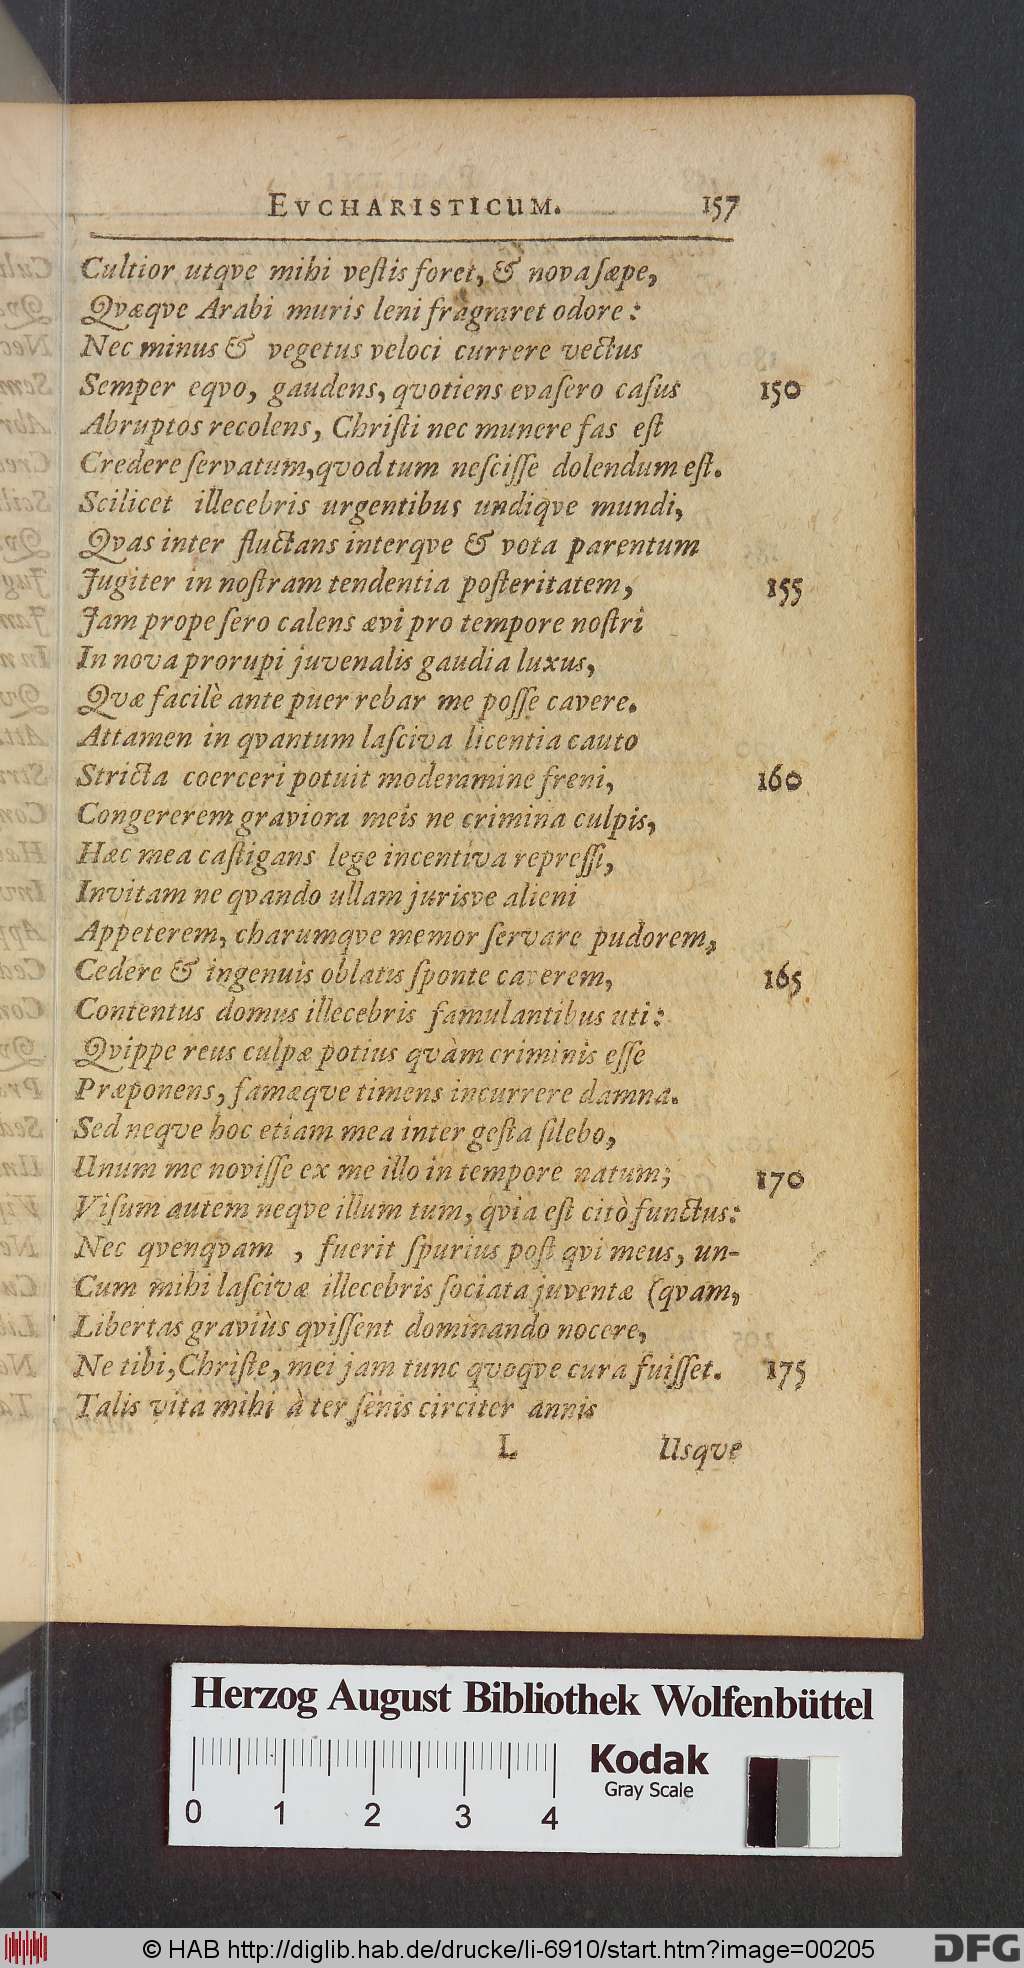 EVCHARISTICUM. 157
Cultior utqve mihi vestis foret, & nova sæpe,
Qvæqve Arabi muris leni fragraret odore:
Nec minus & vegetus veloci currere vectus
Semper eqvo, gaudens, qvotiens evasero casus 150
Abruptos recolens, Christi nec munere fas est
Credere servatum, qvod tum nescisse dolendum est.
Scilicet illecebris urgentibus undiqve mundi,
Qvas inter fluctans interqve & vota parentum
Jugiter in nostram tendentia posteritatem, 155
Jam prope sero calens ævi pro tempore nostri
In nova prorupi juvenalis gaudia luxus,
Qvæ facilè ante puer rebar me posse cavere.
Attamen in qvantum lasciva licentia cauto
Stricta coerceri potuit moderamine freni, 160
Congererem graviora meis ne crimina culpis,
Hæc mea castigans lege incentiva repressi,
Invitam ne qvando ullam jurisve alieni
Appeterem, charumqve memor servare pudorem,
Cedere & ingenuis oblatis sponte caverem, 165
Contentus domus illecebris famulantibus uti:
Qvippe reus culpæ potius qvàm criminis esse
Præponens, famæqve timens incurrere damna.
Sed neqve hoc etiam mea inter gesta silebo,
Unum me novisse ex me illo in tempore natum; 170
Visum autem neqve illum tum, qvia est citò functus:
Nec qvenqvam , fuerit spurius post qvi meus, un-
Cum mihi lascivæ illecebris sociata juventæ (qvam,
Libertas graviùs qvissent dominando nocere,
Ne tibi, Christe, mei jam tunc qvoqve cura fuisset. 175
Talis vita mihi à ter senis circiter annis
L Usqve
Herzog August Bibliothek Wolfenbüttel
Kodak
Gray Scale
0 1 2 3 4
© HAB http://diglib.hab.de/drucke/li-6910/start.htm?image=00205
DFG